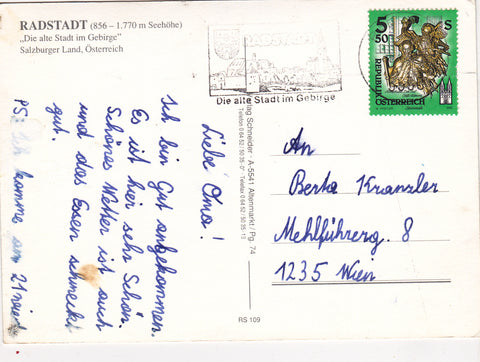 RADSTADT (856 – 1.770 m Seehöhe)
„Die alte Stadt im Gebirge"
Salzburger Land, Österreich
Die alte Stadt im Gebirge
5
50
S
REPUBLIK
ÖSTERREICH
Liebe Oma!
Ich bin Gut angekommen.
Es ist hier sehr Schön.
Schönes Wetter ist auch
und das Essen schmeckt
gut.
PS: Ich komme am 21
Schneider · A-5541 Altenmarkt / Pg. 74
RS 109
An
Berta Kranzler
Mehlführerg. 8
1235 Wien